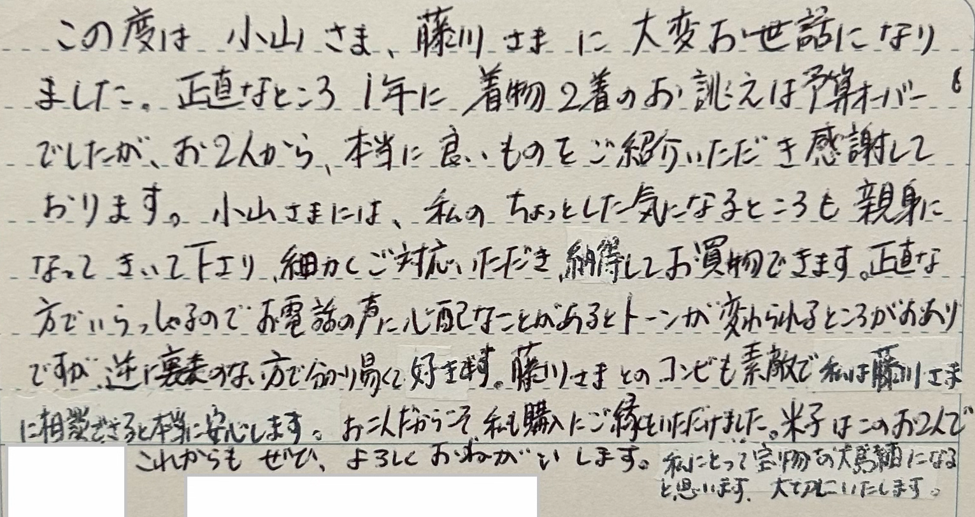 この度は 小山さま、藤川さまに 大変お世話になり
ました。正直なところ 1年に 着物2着のお誂えは予算オーバー
でしたが、お2人から、本当に良いものをご紹介いただき感謝して
おります。小山さまには、私の ちょっとした気になるところも 親身に
なって きいて下さり、細かくご対応いただき、納得してお買物できます。正直な
方でいらっしゃるのでお電話の声に心配なことがあるとトーンが変わられるところがおあり
ですが、逆に裏表のない方で分かり易くて好きです。藤川さまとのコンビも素敵で 私は藤川さま
に相談できると本当に安心します。お二人だからこそ 私も購入にご縁をいただけました。米子はこのお2人で
これからも ぜひ、よろしくおねがいします。
私にとって宝物の大島紬になる
と思います。大切にいたします。